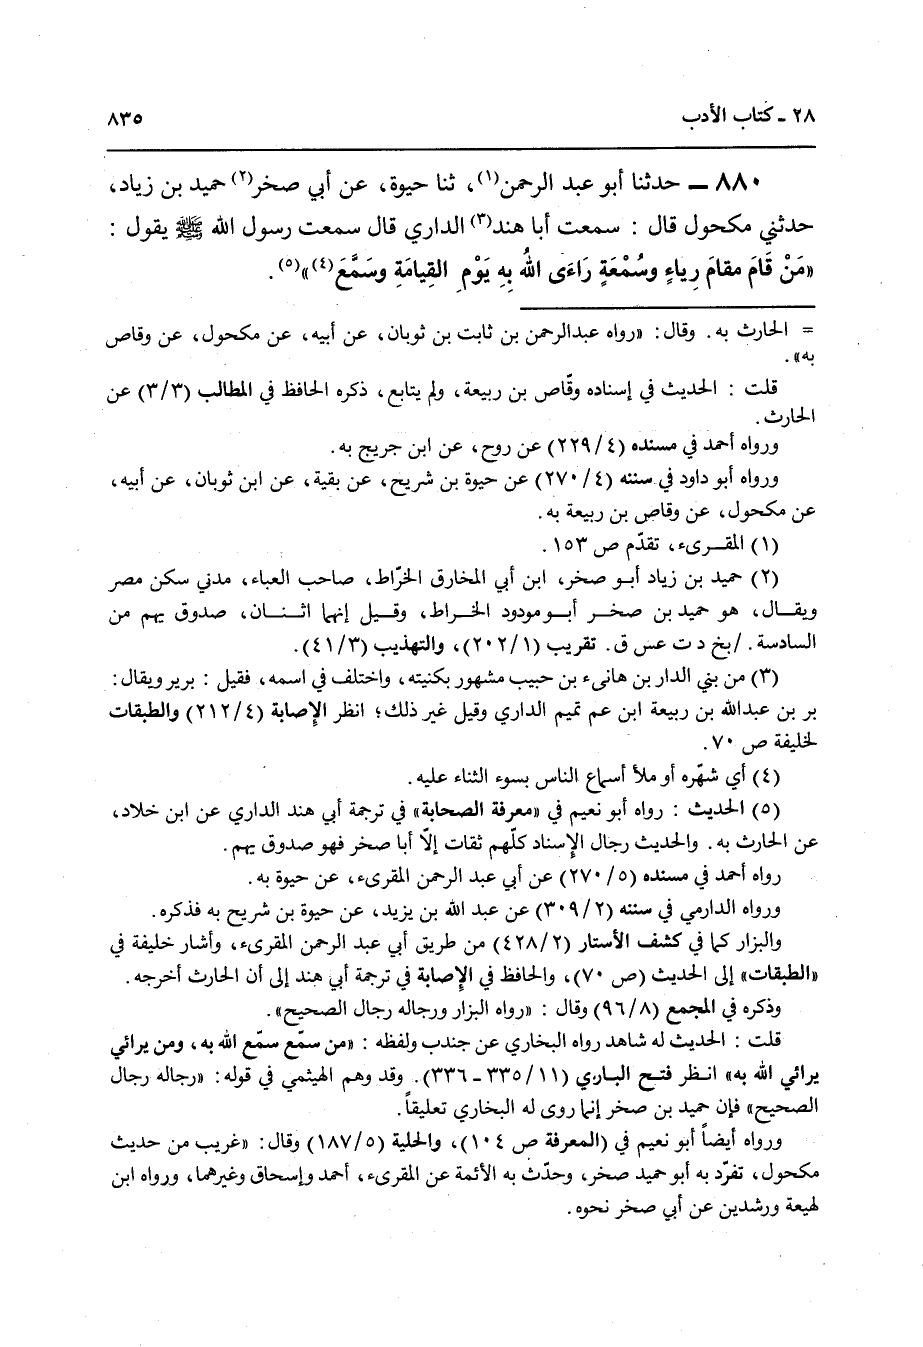 ٢٨ ـ كتاب الأدب ٨٣٥
٨٨٠ ــ حدثنا أبو عبد الرحمن(١)، ثنا حيوة، عن أبي صخر(٢) حميد بن زياد،
حدثني مكحول قال : سمعت أبا هند(٣) الداري قال سمعت رسول الله ﷺ يقول :
«مَنْ قَامَ مقامَ رِياءٍ وسُمْعَةٍ رَاءَى اللهُ بِهِ يَوْمِ القِيامَةِ وسَمَّعَ(٤)»(٥).
= الحارث به. وقال: «رواه عبدالرحمن بن ثابت بن ثوبان، عن أبيه، عن مكحول، عن وقاص
به».
قلت : الحديث في إسناده وقّاص بن ربيعة، ولم يتابع، ذكره الحافظ في المطالب (٣/٣) عن
الحارث.
ورواه أحمد في مسنده (٢٢٩/٤) عن روح، عن ابن جريج به.
ورواه أبو داود في سننه (٢٧٠/٤) عن حيوة بن شريح، عن بقية، عن ابن ثوبان، عن أبيه،
عن مكحول، عن وقاص بن ربيعة به.
(١) المقـرىء، تقدّم ص ١٥٣.
(٢) حميد بن زياد أبـو صخر، ابن أبي المخارق الخرّاط، صاحب العباء، مدني سكن مصر
ويقـال، هو حميد بن صخـر أبـو مودود الخـراط، وقـيل إنهما اثـنـان، صدوق يهم من
السادسة. /بخ د ت عس ق. تقريب (٢٠٢/١)، والتهذيب (٤١/٣).
(٣) من بني الدار بن هانىء بن حبيب مشهور بكنيته، واختلف في اسمه، فقيل : برير ويقال:
بر بن عبدالله بن ربيعة ابن عم تميم الداري وقيل غير ذلك؛ انظر الإصابة (٢١٢/٤) والطبقات
لخليفة ص ٧٠.
(٤) أي شهّره أو ملأ أسماع الناس بسوء الثناء عليه.
(٥) الحديث : رواه أبو نعيم في «معرفة الصحابة» في ترجمة أبي هند الداري عن ابن خلاد،
عن الحارث به. والحديث رجال الإسناد كلّهم ثقات إلاّ أبا صخر فهو صدوق يهم.
رواه أحمد في مسنده (٢٧٠/٥) عن أبي عبد الرحمن المقرىء، عن حيوة به.
ورواه الدارمي في سننه (٣٠٩/٢) عن عبد الله بن يزيد، عن حيوة بن شريح به فذكره.
والبزار كما في كشف الأستار (٤٢٨/٢) من طريق أبي عبد الرحمن المقرىء، وأشار خليفة في
«الطبقات» إلى الحديث (ص ٧٠)، والحافظ في الإصابة في ترجمة أبي هند إلى أن الحارث أخرجه.
وذكره في المجمع (٩٦/٨) وقال : «رواه البزار ورجاله رجال الصحيح».
قلت : الحديث له شاهد رواه البخاري عن جندب ولفظه : «من سمّع سمّع الله به، ومن يرائي
يرائي الله به» انـظر فتـح البـاري (٣٣٥/١١ ـ ٣٣٦). وقد وهم الهيثمي في قوله: «رجاله رجال
الصحيح» فإن حميد بن صخر إنما روى له البخاري تعليقاً.
ورواه أيضاً أبو نعيم في (المعرفة ص ١٠٤)، والحلية (١٨٧/٥) وقال: «غريب من حديث
مكحول، تفرّد به أبو حميد صخر، وحدّث به الأئمة عن المقرىء، أحمد وإسحاق وغيرهما، ورواه ابن
لهيعة ورشدين عن أبي صخر نحوه.